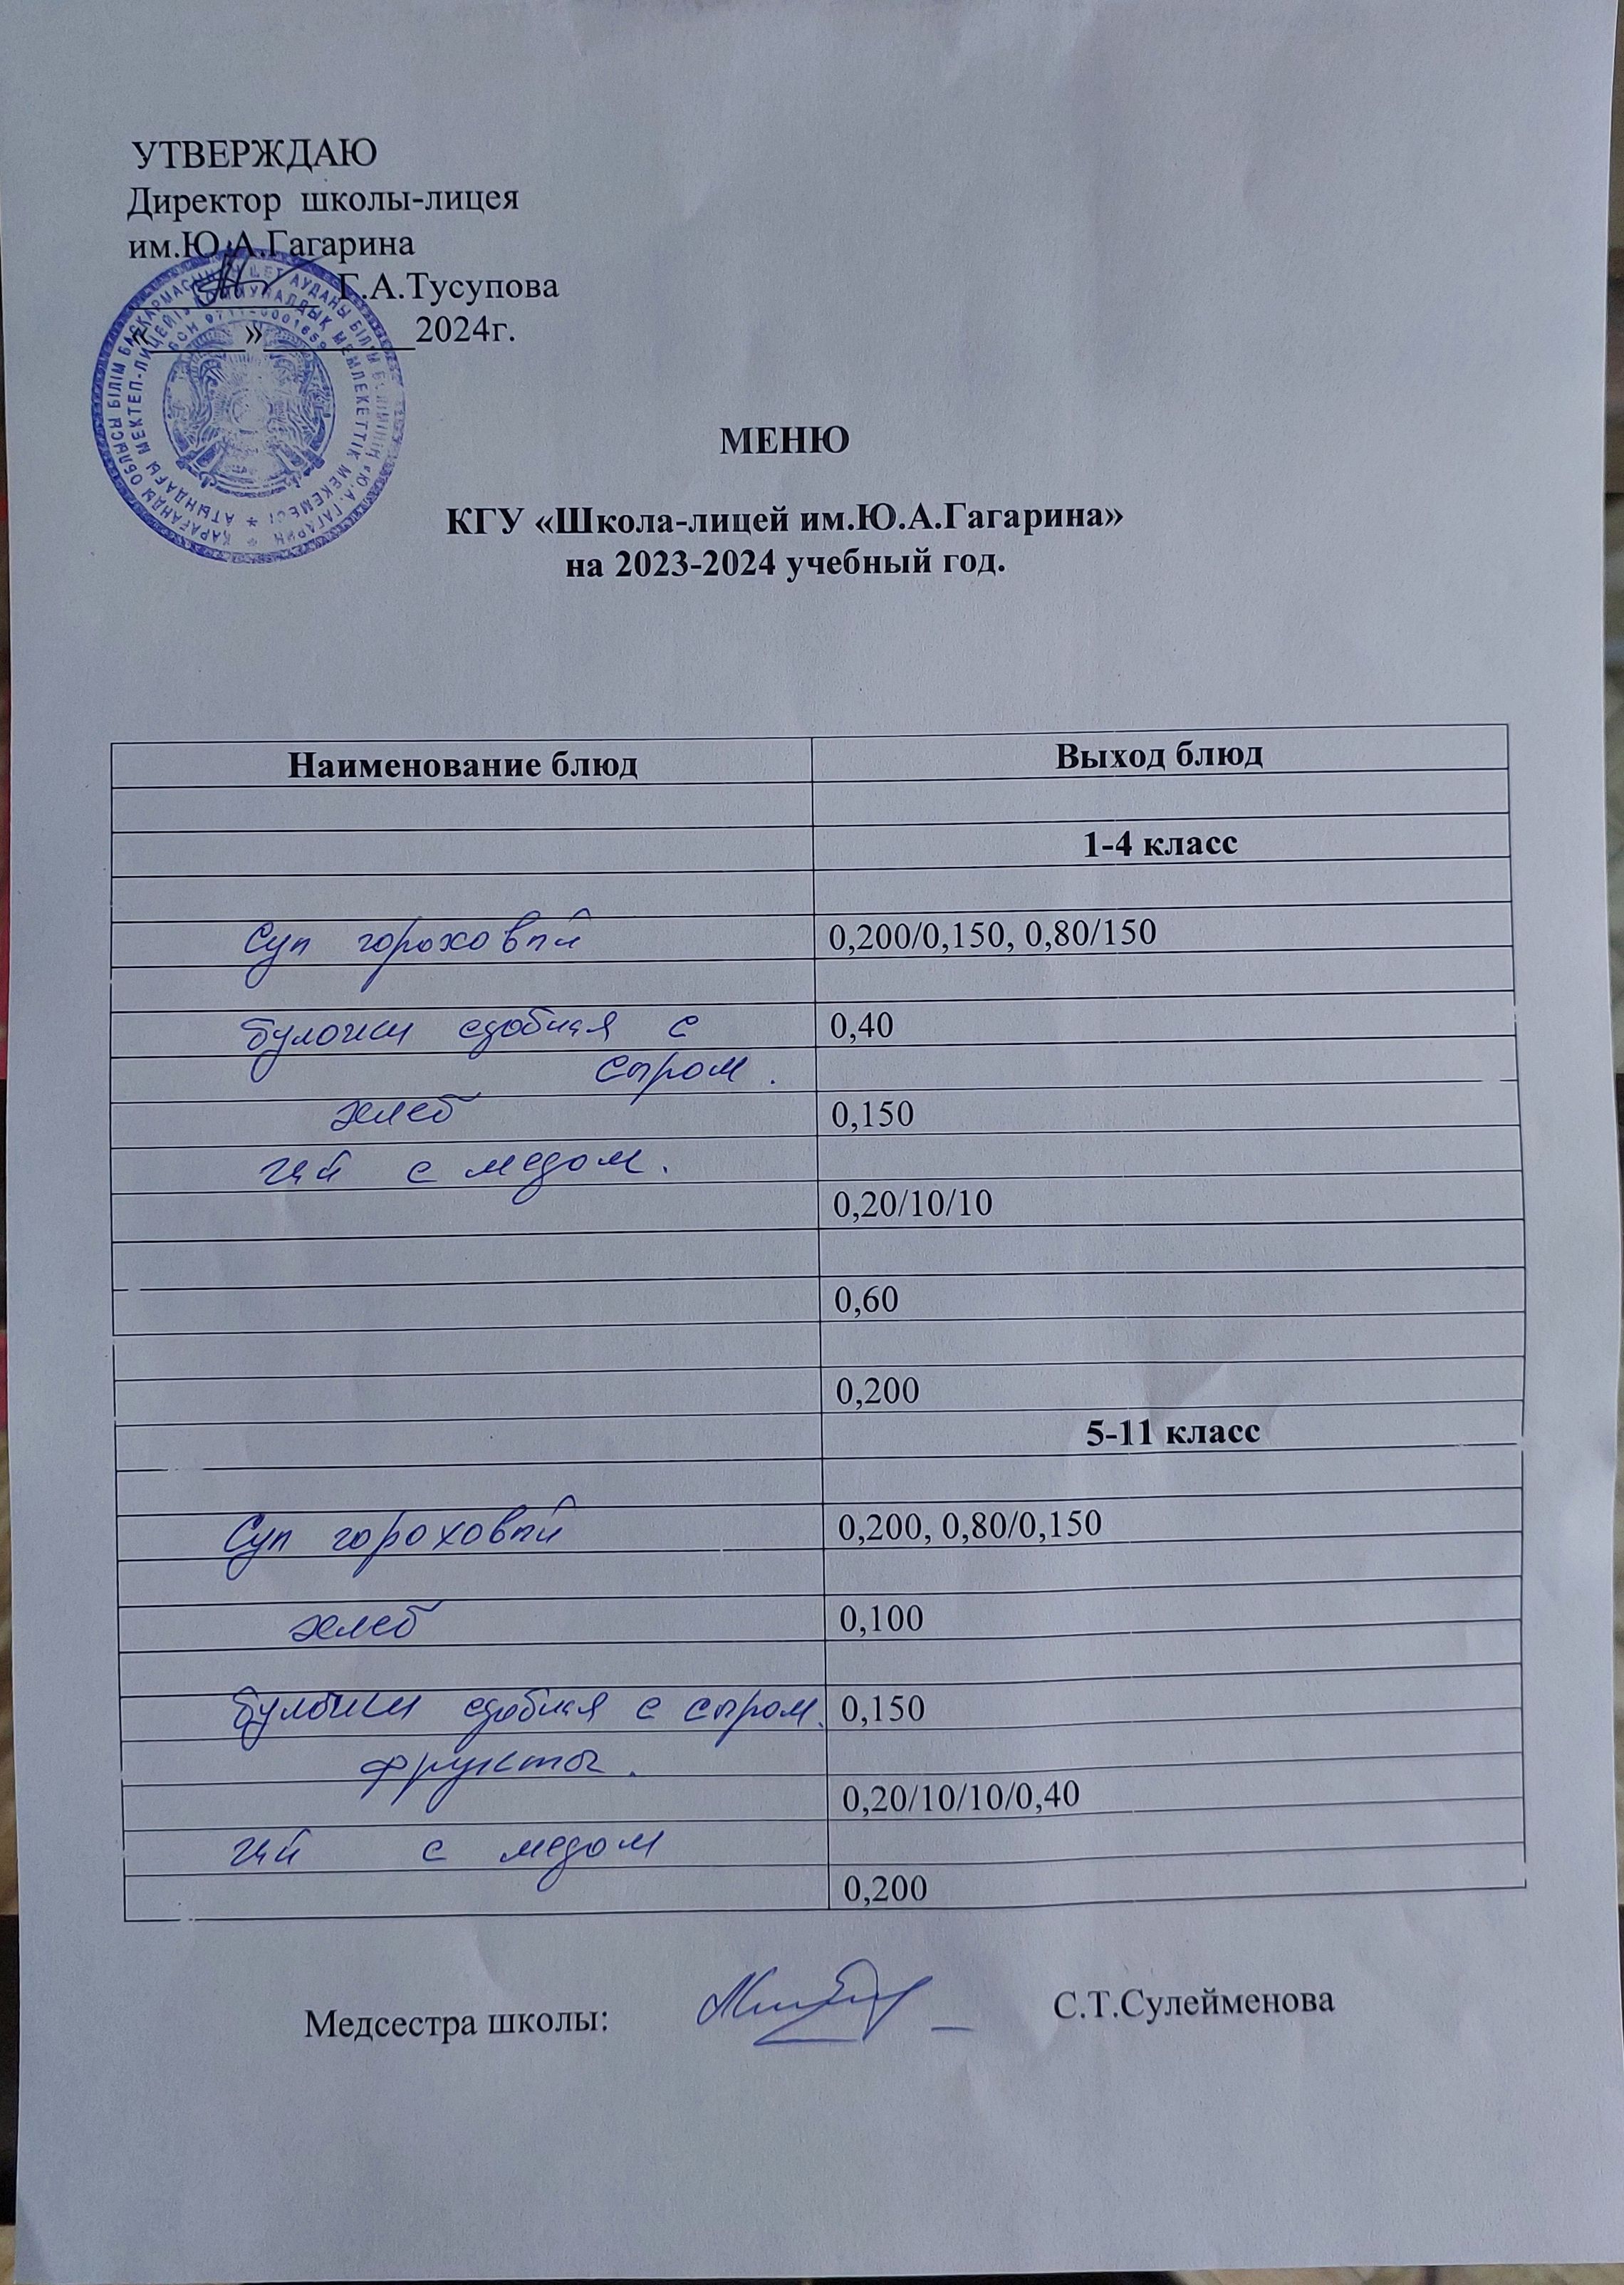 УТВЕРЖДАЮ
Директор школы-лицея
им.Ю.А.Гагарина
Г.А.Тусупова
«______»________2024г.
МЕНЮ
КГУ «Школа-лицей им.Ю.А.Гагарина»
на 2023-2024 учебный год.
Наименование блюд Выход блюд
1-4 класс
Суп гороховый 0,200/0,150, 0,80/150
булочки сдобная с 0,40
сыром.
хлеб 0,150
чай с медом.
0,20/10/10
0,60
0,200
5-11 класс
Суп гороховый 0,200, 0,80/0,150
хлеб 0,100
булочки сдобная с сыром. 0,150
фрукты.
0,20/10/10/0,40
чай с медом
0,200
Медсестра школы: С.Т.Сулейменова